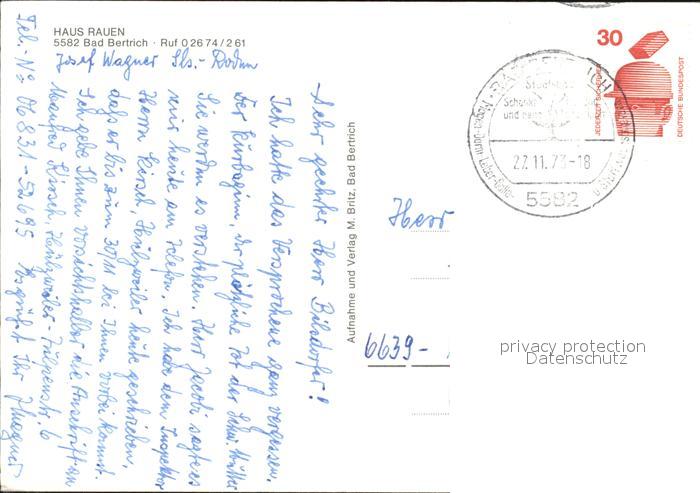 HAUS RAUEN
5582 Bad Bertrich · Ruf 0 26 74 / 2 61
Josef Wagner Sls.-Rodm
Sehr geehrter Herr Bilsdorfer!
Ich hatte das Versprochene ganz vergessen.
Der Kurbeginn, der plötzliche Tod der Schw. Mutter
Sie werden es verstehen. Herr Jacobi sagte es
mir heute am Telefon. Ich habe dem Inspektor
Herrn Kirsch, Hülzweiler heute geschrieben,
daß er bis zum 30/11 bei Ihnen vorbei kommt.
Ich gebe Ihnen vorsichtshalber die Anschrift an
Kirsch, Hülzweiler -
Es grüßt Ihr JWagner
Tel.-Nº 06831-52695
Aufnahme und Verlag M. Britz, Bad Bertrich
Herr
6639-
30
JEDERZEIT SICHERHEIT
DEUTSCHE BUNDESPOST
22.11.73-18
5582
privacy protection
Datenschutz